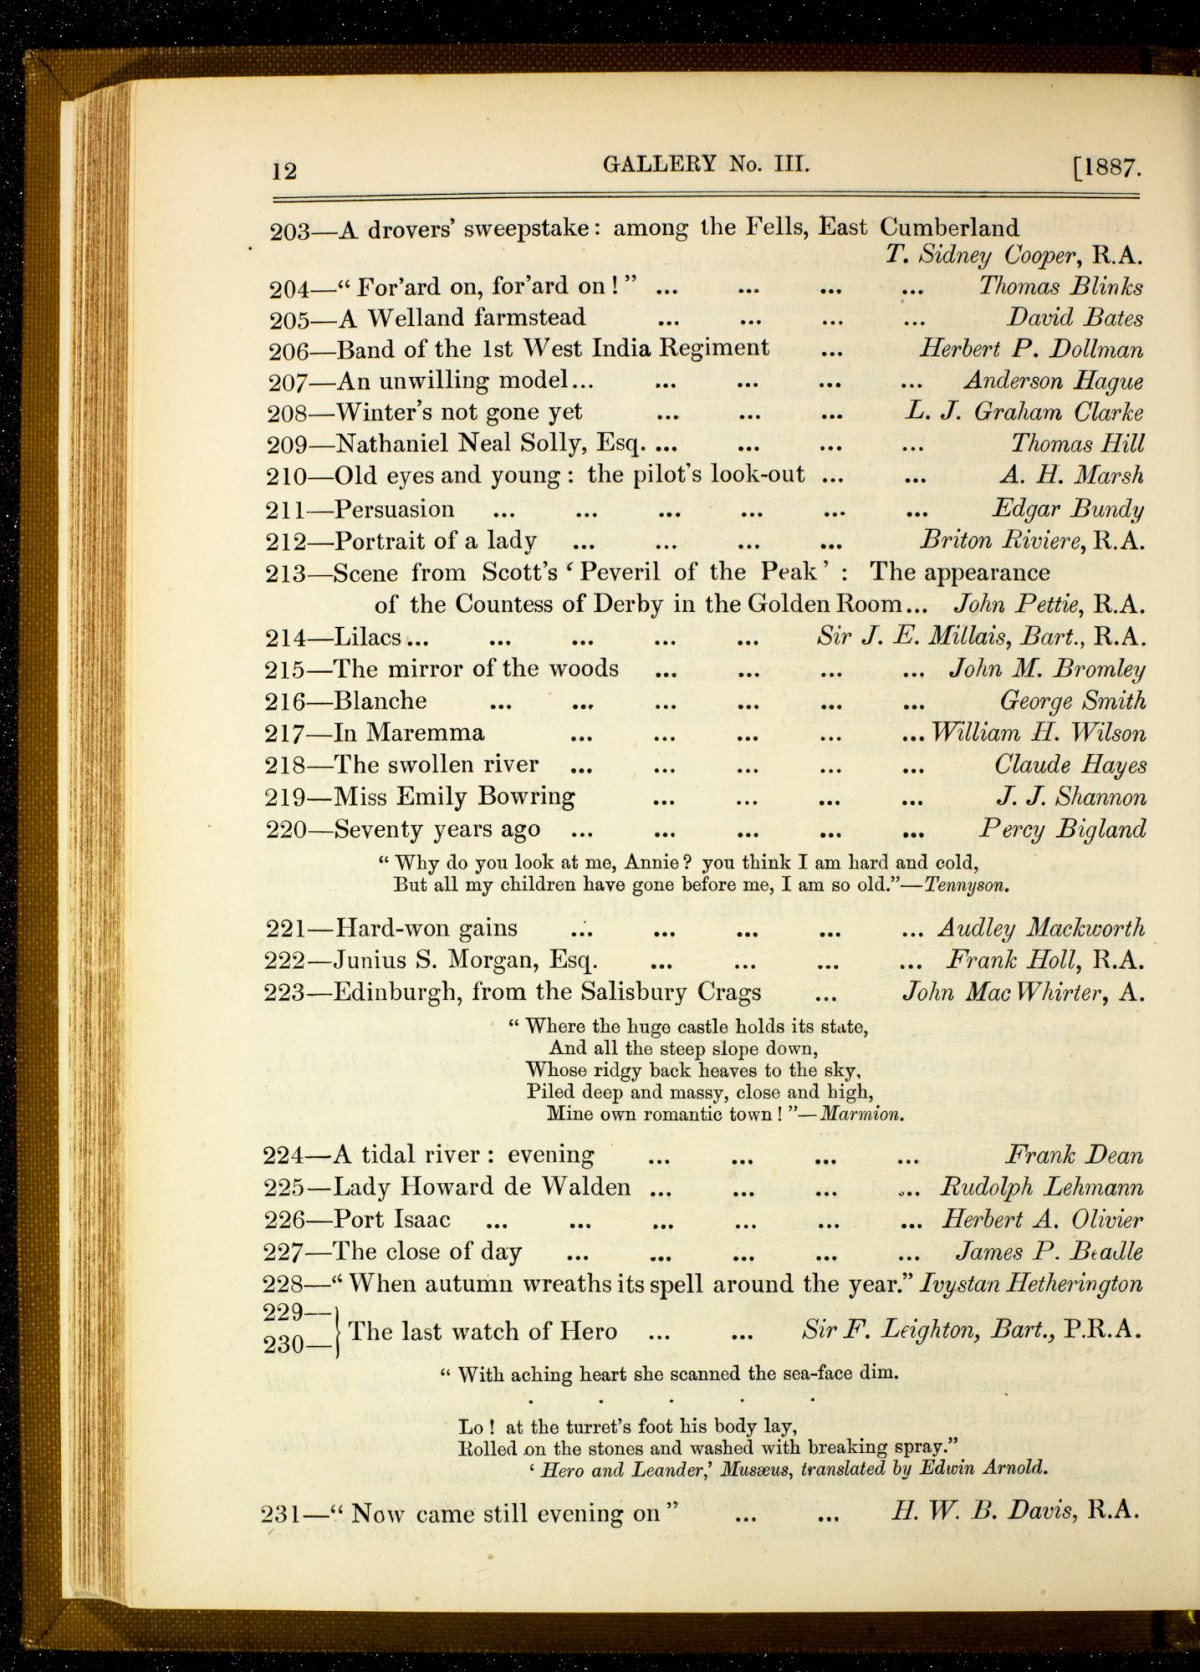 12 GALLERY No. III. [1887.
203—A drovers' sweepstake: among the Fells, East Cumberland
T. Sidney Cooper, R.A.
204—“ For'ard on, for'ard on ! ” ... ... ... ... Thomas Blinks
205—A Welland farmstead ... ... ... ... David Bates
206—Band of the 1st West India Regiment ... Herbert P. Dollman
207—An unwilling model... ... ... ... ... Anderson Hague
208—Winter's not gone yet ... ... ... L. J. Graham Clarke
209—Nathaniel Neal Solly, Esq. ... ... ... ... Thomas Hill
210—Old eyes and young : the pilot's look-out ... ... A. H. Marsh
211—Persuasion ... ... ... ... ... ... Edgar Bundy
212—Portrait of a lady ... ... ... ... Briton Riviere, R.A.
213—Scene from Scott's ‘ Peveril of the Peak ’ : The appearance
of the Countess of Derby in the Golden Room... John Pettie, R.A.
214—Lilacs... ... ... ... ... Sir J. E. Millais, Bart., R.A.
215—The mirror of the woods ... ... ... ... John M. Bromley
216—Blanche ... ... ... ... ... ... George Smith
217—In Maremma ... ... ... ... ... William H. Wilson
218—The swollen river ... ... ... ... ... Claude Hayes
219—Miss Emily Bowring ... ... ... ... J. J. Shannon
220—Seventy years ago ... ... ... ... ... Percy Bigland
“ Why do you look at me, Annie ? you think I am hard and cold,
But all my children have gone before me, I am so old.”—Tennyson.
221—Hard-won gains ... ... ... ... ... Audley Mackworth
222—Junius S. Morgan, Esq. ... ... ... ... Frank Holl, R.A.
223—Edinburgh, from the Salisbury Crags ... John Mac Whirter, A.
“ Where the huge castle holds its state,
And all the steep slope down,
Whose ridgy back heaves to the sky,
Piled deep and massy, close and high,
Mine own romantic town ! ”—Marmion.
224—A tidal river : evening ... ... ... ... Frank Dean
225—Lady Howard de Walden ... ... ... ... Rudolph Lehmann
226—Port Isaac ... ... ... ... ... ... Herbert A. Olivier
227—The close of day ... ... ... ... ... James P. Beadle
228—“ When autumn wreaths its spell around the year.” Ivystan Hetherington
229—
230—} The last watch of Hero ... ... Sir F. Leighton, Bart., P.R.A.
“ With aching heart she scanned the sea-face dim.
. . . . .
Lo ! at the turret's foot his body lay,
Rolled on the stones and washed with breaking spray.”
‘ Hero and Leander,’ Musæus, translated by Edwin Arnold.
231—“ Now came still evening on ” ... ... H. W. B. Davis, R.A.